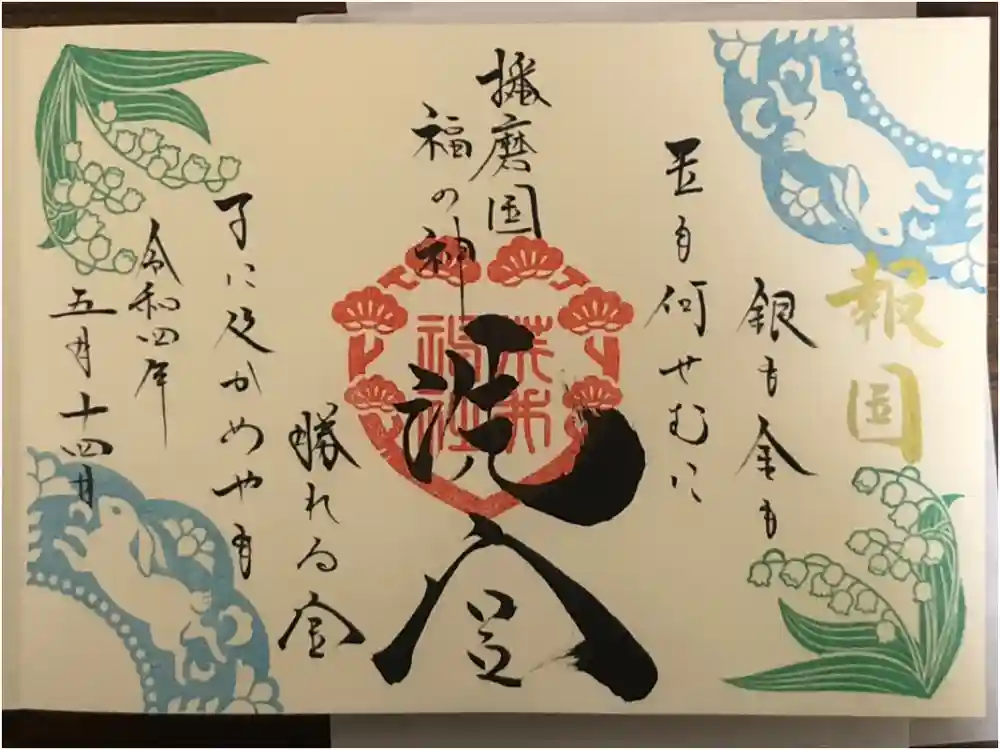 報国
銀も金も
玉も何せむに
播磨国
福の神
勝れる宝
子に及かめやも
令和四年
五月十四日